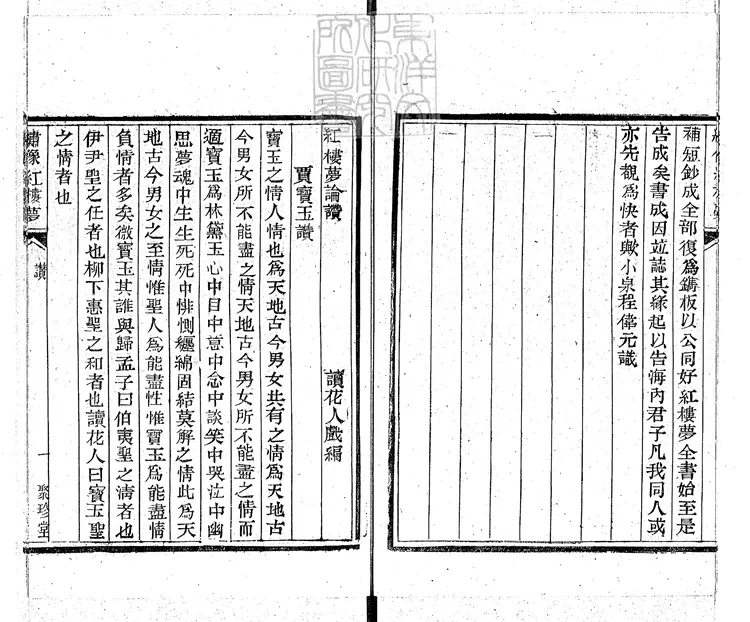 補短鈔成全部復爲鐫板以公同好紅樓夢全書始至是
告成矣書成因並誌其緣起以告海內君子凡我同人或
亦先覩爲快者歟小泉程偉元識
紅樓夢論讚
讀花人戲編
賈寶玉讚
寶玉之情人情也爲天地古今男女共有之情爲天地古
今男女所不能盡之情天地古今男女所不能盡之情而
適寶玉爲林黛玉心中目中意中念中談笑中哭泣中幽
思夢魂中生生死死中悱惻纏綿固結莫解之情此爲天
地古今男女之至情惟聖人爲能盡性惟寶玉爲能盡情
負情者多矣微寶玉其誰與歸孟子曰伯夷聖之淸者也
伊尹聖之任者也柳下惠聖之和者也讀花人曰寶玉聖
之情者也
繡像紅樓夢
讚
一
聚珍堂
東洋文
化研究
所圖書